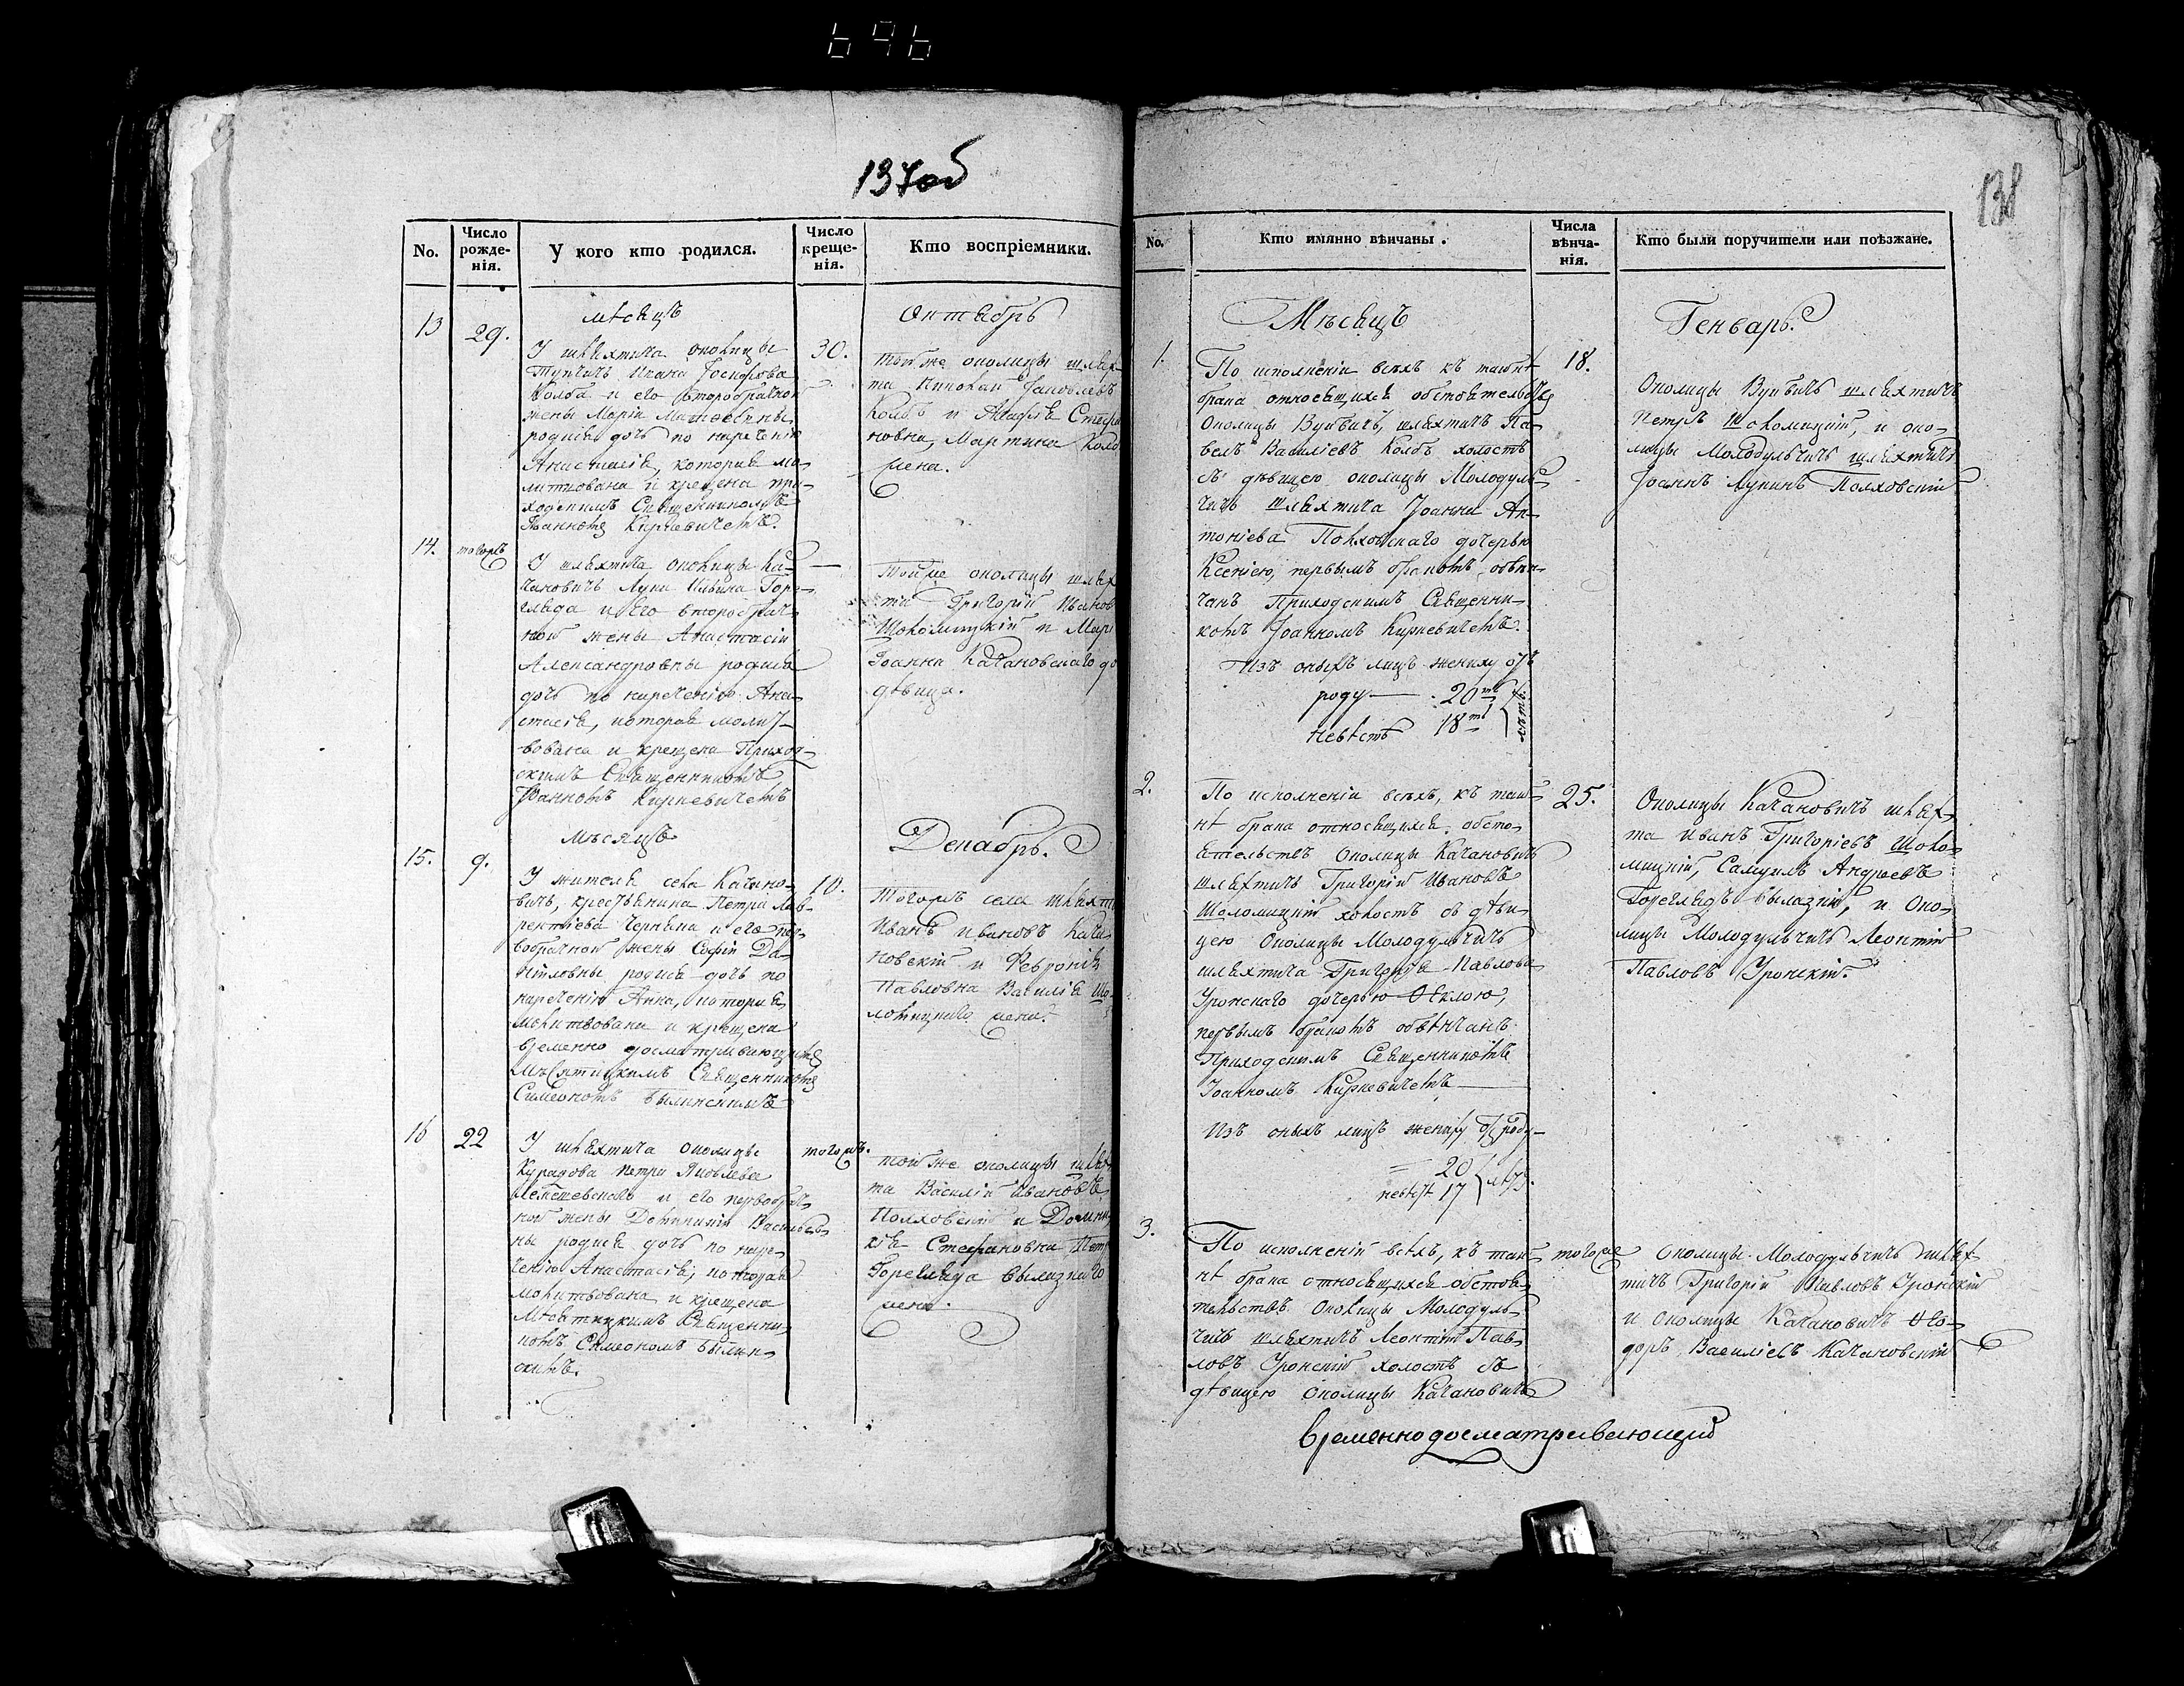 696
137об
No.
Число рожде- нія.
У кого кто родился.
Число креще- нія.
Кто воспріемники.
мѣсяцъ
Октябрь
13
29.
30.
У шляхтича околицы
Ивана Іосифова
Колба и его второбрачной
жены Маріи Матѳеевны
родися дочь по нареченію
Анастасія, которая мо-
литвована и крещена при-
ходскимъ Священникомъ
Іоанномъ Кирневичемъ.
тойже околицы шлях-
та Яковлевъ
Колбъ и Стефа
новна, Мартина Колб
жена.
14.
тогожъ
У шляхтича околицы Ка-
чановичъ Луки Ильина Горе-
гляда и его второбрач-
ной жены Анастасіи
Александровны родися
дочь по нареченію Ана-
стасія, которая молит-
вована и крещена Приход-
скимъ Священникомъ
Іоанномъ Кирневичемъ
Тойже околицы шлях
та Григорій Иванов
Шоломицкій и Мар
Іоанна Качановскаго до
дѣвица.
мѣсяцъ
Декабрь.
15.
9.
10.
У жителя села Качано-
вичъ, крестьянина Петра Лав-
рентіева Черныка и его пер-
вобрачной жены Софіи Да-
ніиловны родися дочь по
нареченію Анна, которая
молитвована и крещена
временно досматривающимъ
Мѣсятицкимъ Священникомъ
Симеономъ Былинскимъ
Тогожъ села шляхт
Иванъ Ивановъ Кача
новскій и Февронія
Павловна Василія Шо-
ломицкаго жена.
16
22
тогожъ.
У шляхтича околицы
Курадова Петра Яковлева
Лемешевскаго и его первобрач-
ной жены Доминикіи Васильев-
ны родися дочь по наре-
ченію Анастасія, которая
молитвована и крещена
Мѣсятицкимъ Священни-
комъ Симеономъ Былин-
скимъ.
той же околицы шлях
та Василій Ивановъ
Полховскій и Домни
кія Стефановна Пет
Горегляда Вылазкаго
жена.
138
No.
Кто имянно вѣнчаны.
Числа вѣнча- нія.
Кто были поручители или поѣзжане.
Мѣсяцъ
Генварь.
1.
18.
По исполненіи всѣхъ къ тайнѣ
брака относящихся обстоятельствъ
Околицы Вуивичъ, шляхтичъ Па-
велъ Василіевъ Колбъ холостъ
съ дѣвицею околицы Молодуль-
чичъ шляхтича Іоанна Ан-
тоніева Полховскаго дочерью
Ксеніею, первымъ бракомъ обвѣн-
чанъ Приходскимъ Священни-
комъ Іоанномъ Кирневичемъ.
Изъ оныхъ лицъ жениху отъ
роду — 20ть
невѣстѣ 18ть
лѣтъ
Околицы Вуивичъ шляхтичъ
Петръ Шоломицкій, и око-
лицы Молодульчичъ шляхтичъ
Іоаннъ Лукинъ Полховскій
2.
25.
По исполненіи всѣхъ, къ тай-
нѣ брака относящихся, обсто-
ятельствъ Околицы Качановичъ
шляхтичъ Григорій Ивановъ
Шоломицкій холостъ съ дѣви-
цею Околицы Молодульчичъ
шляхтича Григорія Павлова
Уронскаго дочерью Ѳеклою,
первымъ бракомъ обвѣнчанъ
Приходскимъ Священникомъ
Іоанномъ Кирневичемъ —
Изъ оныхъ лицъ жениху отъ роду —
20
невѣстѣ 17
лѣтъ.
Околицы Качановичъ шлях-
та Иванъ Григоріевъ Шоло-
мицкій, Самуилъ Андреевъ
Гореглядъ Вылазкій, и Око-
лицы Молодульчичъ Леонтій
Павловъ Уронскій.
3.
тогоже
По исполненіи всѣхъ, къ тай-
нѣ брака относящихся обстоя-
тельствъ Околицы Молодуль-
чичъ шляхтичъ Леонтій Пав-
ловъ Уронскій холостъ съ
дѣвицею Околицы Качановичъ
Околицы Молодульчичъ шлях-
тичъ Григорій Павловъ Уронскій
и околицы Качановичъ Ѳео-
доръ Василіевъ Качановскій
временно досматривающій